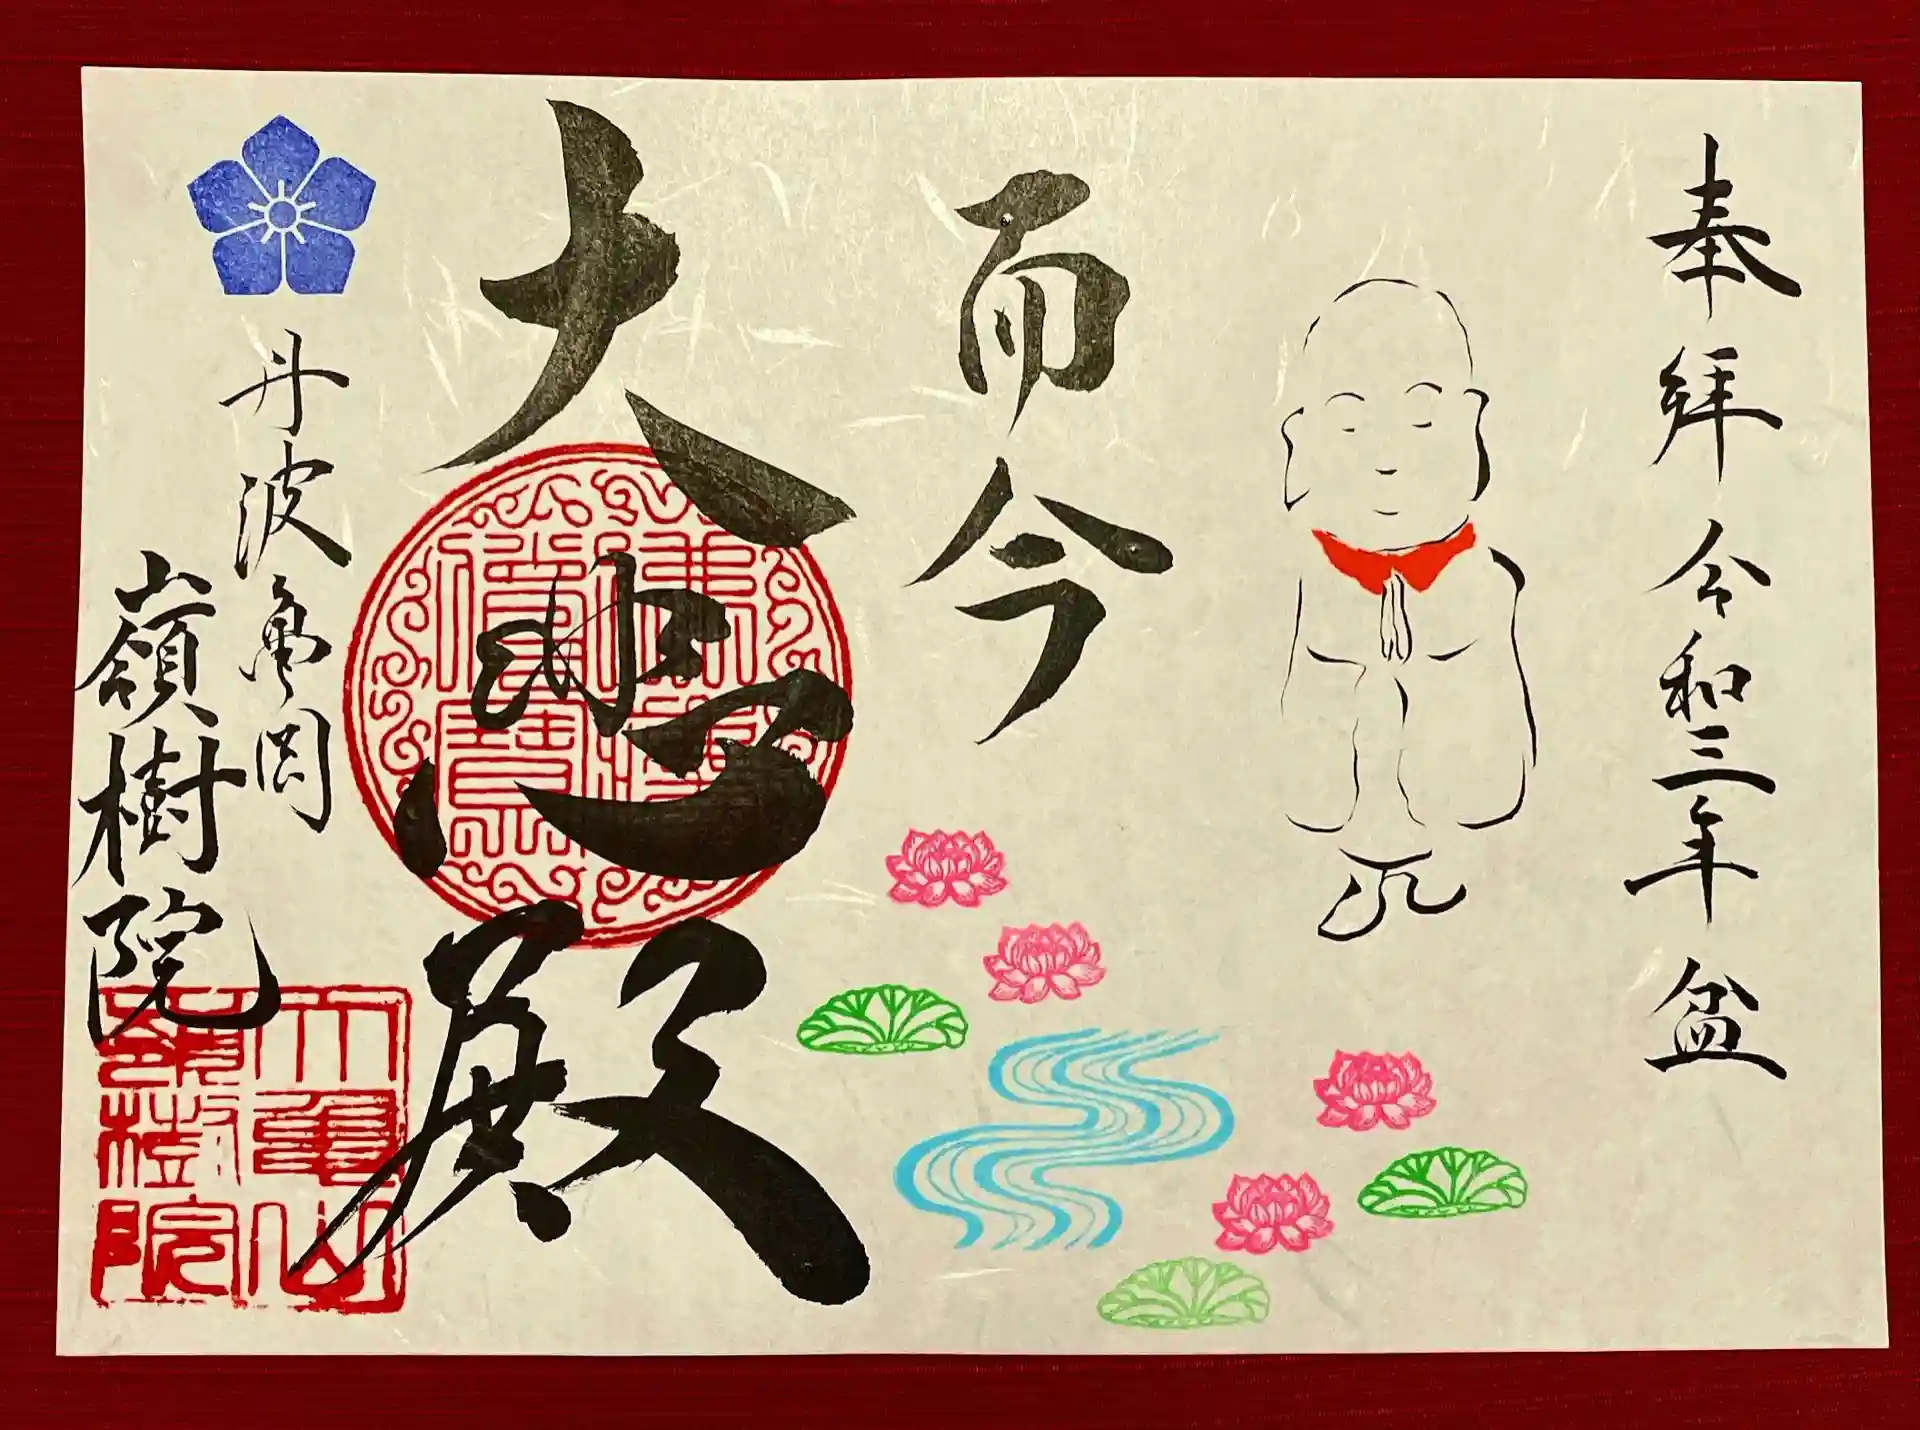 奉拝 令和三年 盆
而今
大悲殿
丹波亀岡
嶺樹院
大亀山
嶺樹院